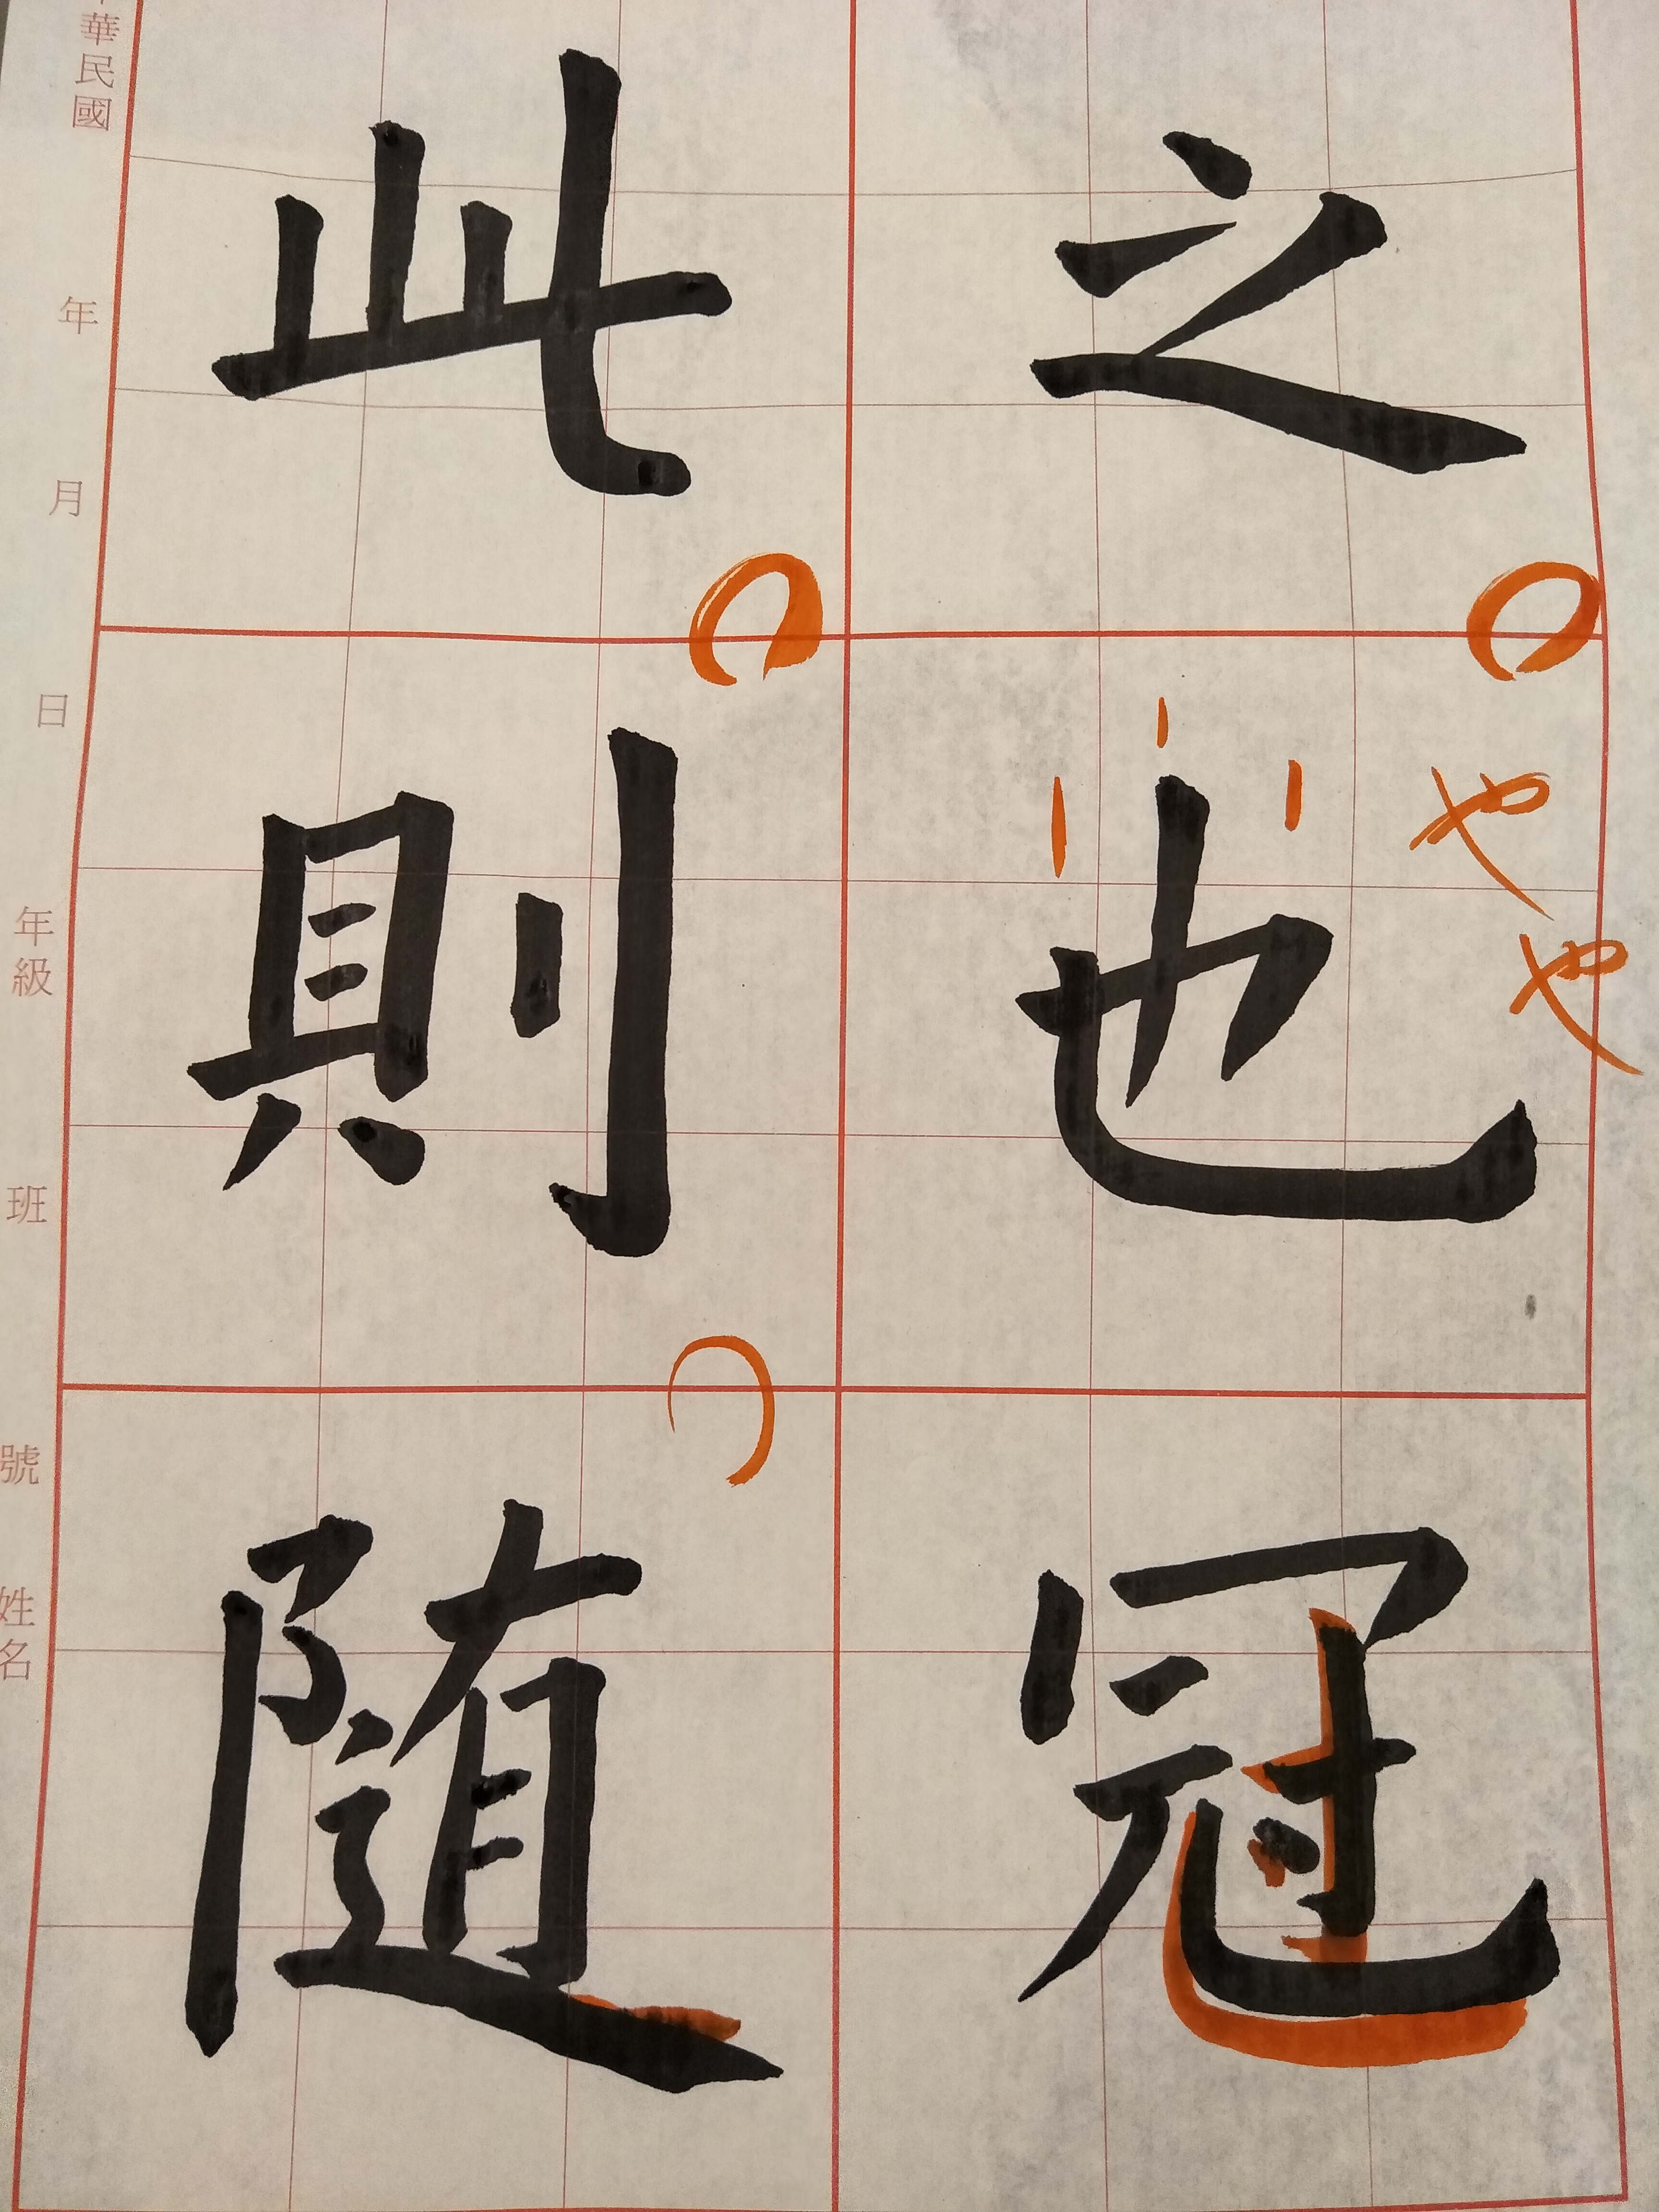 之也冠
やや
此則随
華民國 年 月 日 年級 班 號 姓名